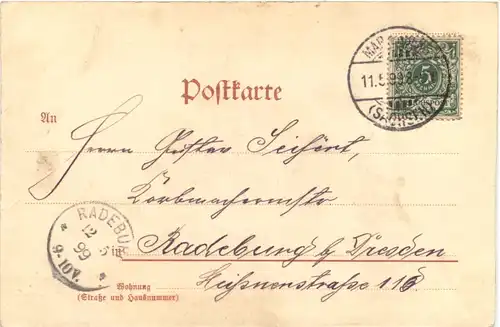 11.5.99.8-
5
(SACHSEN)
Postkarte
An
Herrn Gustav Seifert,
Korbmachermstr.
RADEBURG
12 5 99
9-10V.
in Radeburg b/Dresden
Wohnung
(Straße und Hausnummer)
Meißnerstraße 116